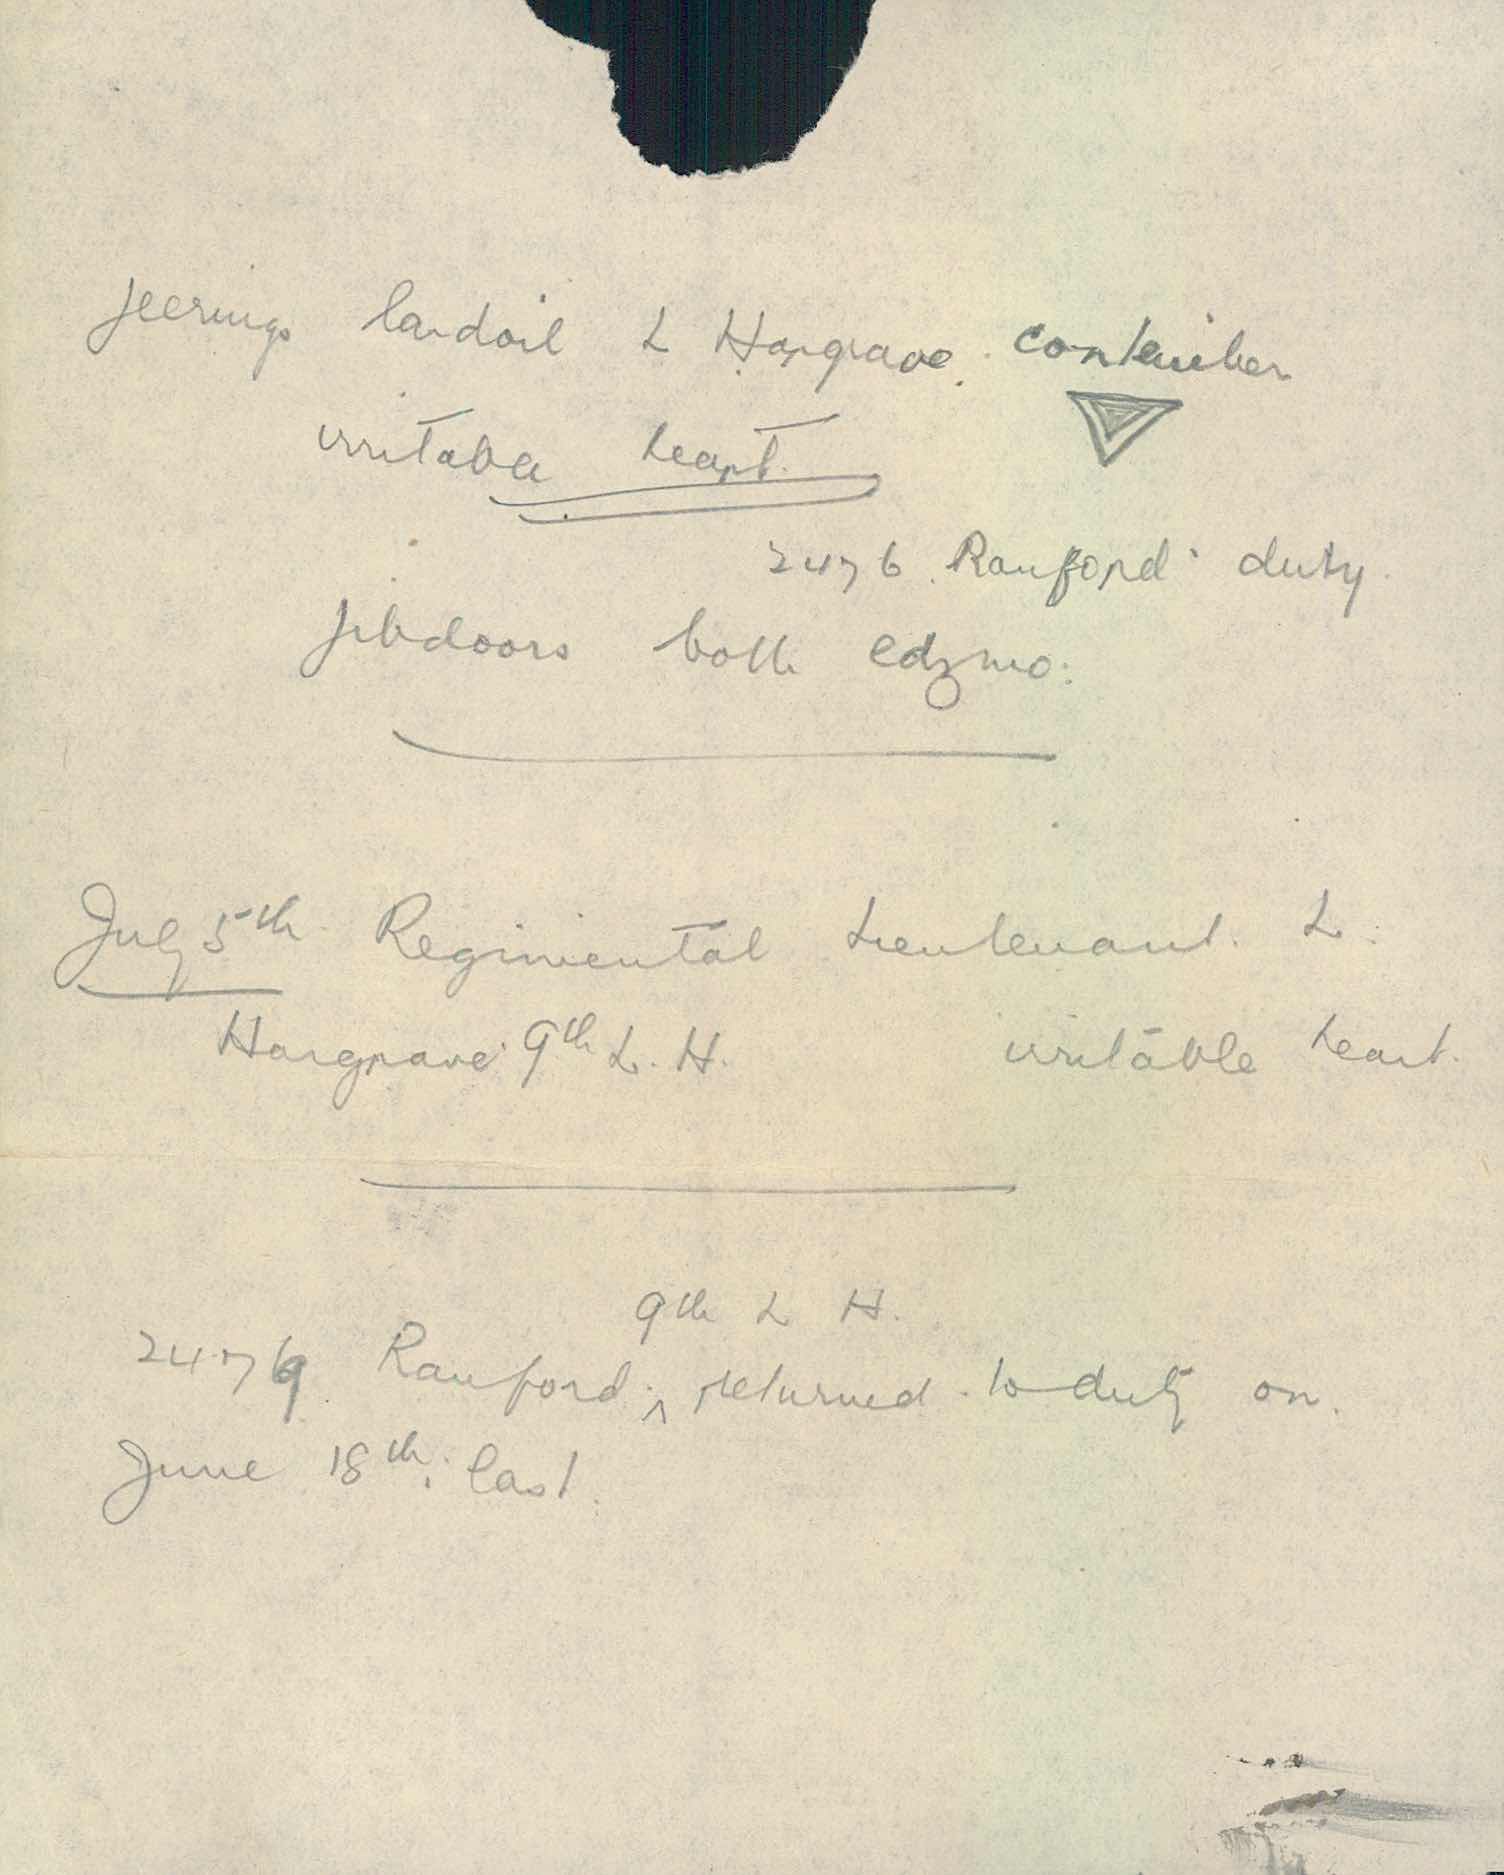 jeerings landoil L Hargrave.
irritable heart.
2476. Ranford duty.
jibdoors both edzmo.
July 5th Regimental Lieutenant. L.
Hargrave 9th L. H. irritable heart.
9th L H.
2479 Ranford ^ returned to duty on
June 18th. last.